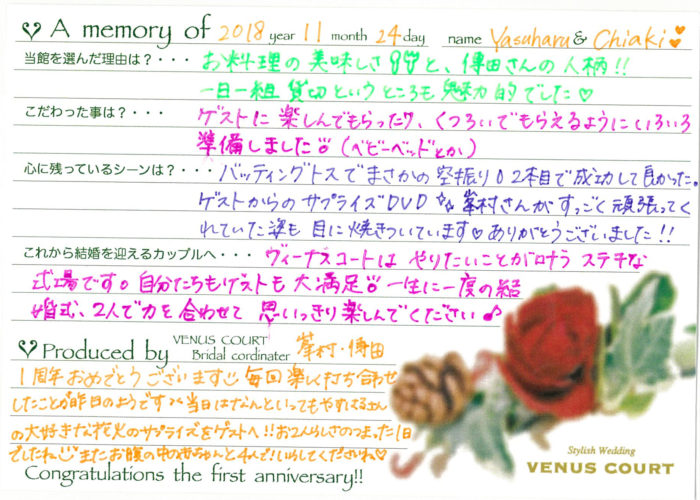 A memory of 2018 year 11 month 24 day name Yasuharu & Chiaki
当館を選んだ理由は？・・・ お料理の美味しさと、傳田さんの人柄!!
一日一組貸切というところも魅力的でした♡
こだわった事は？・・・ ゲストに楽しんでもらったり、くつろいでもらえるようにいろいろ
準備しました（ベビーベッドとか）
心に残っているシーンは？・・・ バッティングトスでまさかの空振り 2本目で成功して良かった。
ゲストからのサプライズDVD 峯村さんがすっごく頑張ってく
れていた姿も目に焼きついています♡ ありがとうございました!!
これから結婚を迎えるカップルへ・・・ ヴィーナスコートは やりたいことが叶う ステキな
式場です。自分たちもゲストも大満足 一生に一度の結
婚式、2人で力を合わせて 思いっきり楽しんでください♪
Produced by VENUS COURT Bridal cordinater 峯村・傳田
1周年おめでとうございます 毎回楽しく打ち合わせ
したことが昨日のようです 当日はなんといってもやすはるさん
の大好きな花火のサプライズをゲストへ!!お2人らしさのつまった1日
でしたね またお腹の中の赤ちゃんと4人でいらしてくださいね♡
Congratulations the first anniversary!!
Stylish Wedding
VENUS COURT